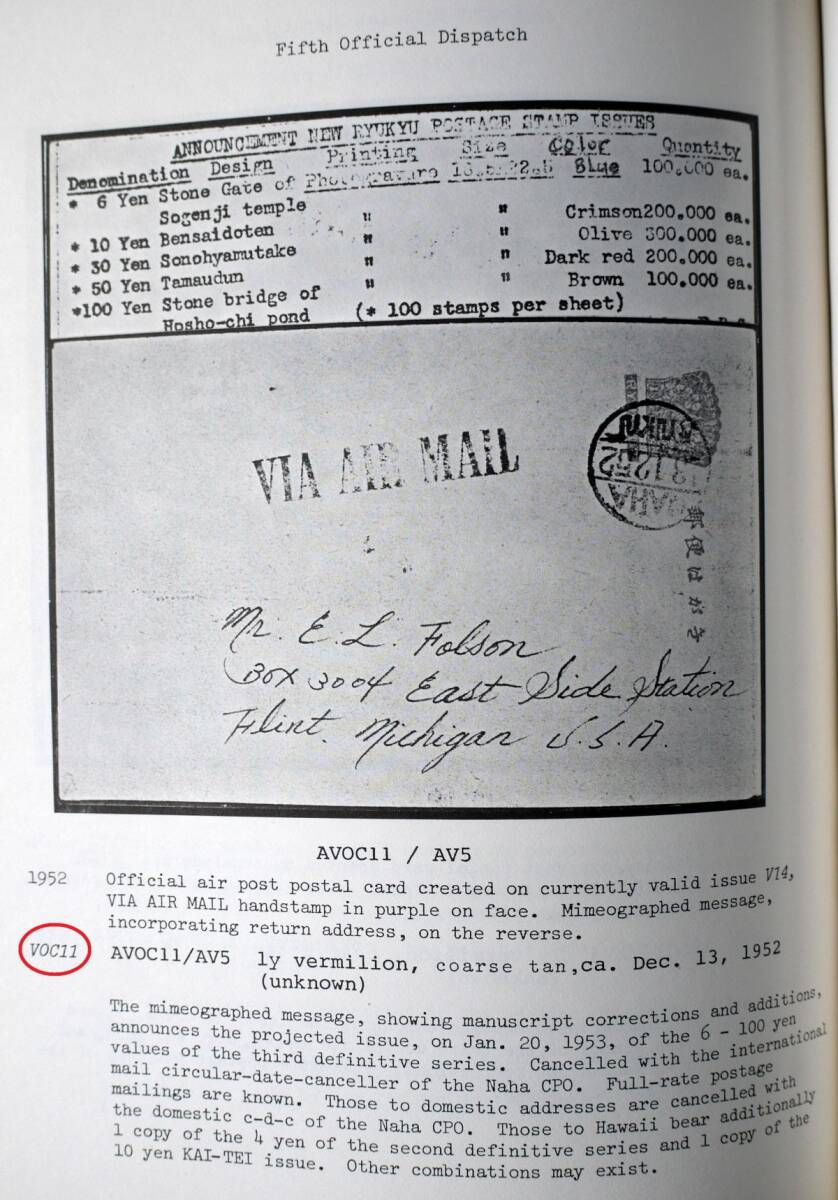 Fifth Official Dispatch
ANNOUNCEMENT NEW RYUKYU POSTAGE STAMP ISSUES
Denomination Design Printing Size Color Quantity
* 6 Yen Stone Gate of Photogravure Blue 100.000 ea.
Sogenji temple
* 10 Yen Bensaidoten " " Crimson 200.000 ea.
* 30 Yen Sonohyamutake " " Olive 300.000 ea.
* 50 Yen Tamaudun " " Dark red 200.000 ea.
*100 Yen Stone bridge of " " Brown 100.000 ea.
Hosho-chi pond (* 100 stamps per sheet)
VIA AIR MAIL
RYUKYU
13.12.52
NAHA
郵便はがき
Mr. E. L. Folson
Box 3004 East Side Station
Flint. Michigan U.S.A.
AVOC11 / AV5
1952 Official air post postal card created on currently valid issue V14,
VIA AIR MAIL handstamp in purple on face. Mimeographed message,
incorporating return address, on the reverse.
VOC11 AVOC11/AV5 1y vermilion, coarse tan,ca. Dec. 13, 1952
(unknown)
The mimeographed message, showing manuscript corrections and additions,
announces the projected issue, on Jan. 20, 1953, of the 6 - 100 yen
values of the third definitive series. Cancelled with the international
mail circular-date-canceller of the Naha CPO. Full-rate postage
mailings are known. Those to domestic addresses are cancelled with
the domestic c-d-c of the Naha CPO. Those to Hawaii bear additionally
1 copy of the 4 yen of the second definitive series and 1 copy of the
10 yen KAI-TEI issue. Other combinations may exist.